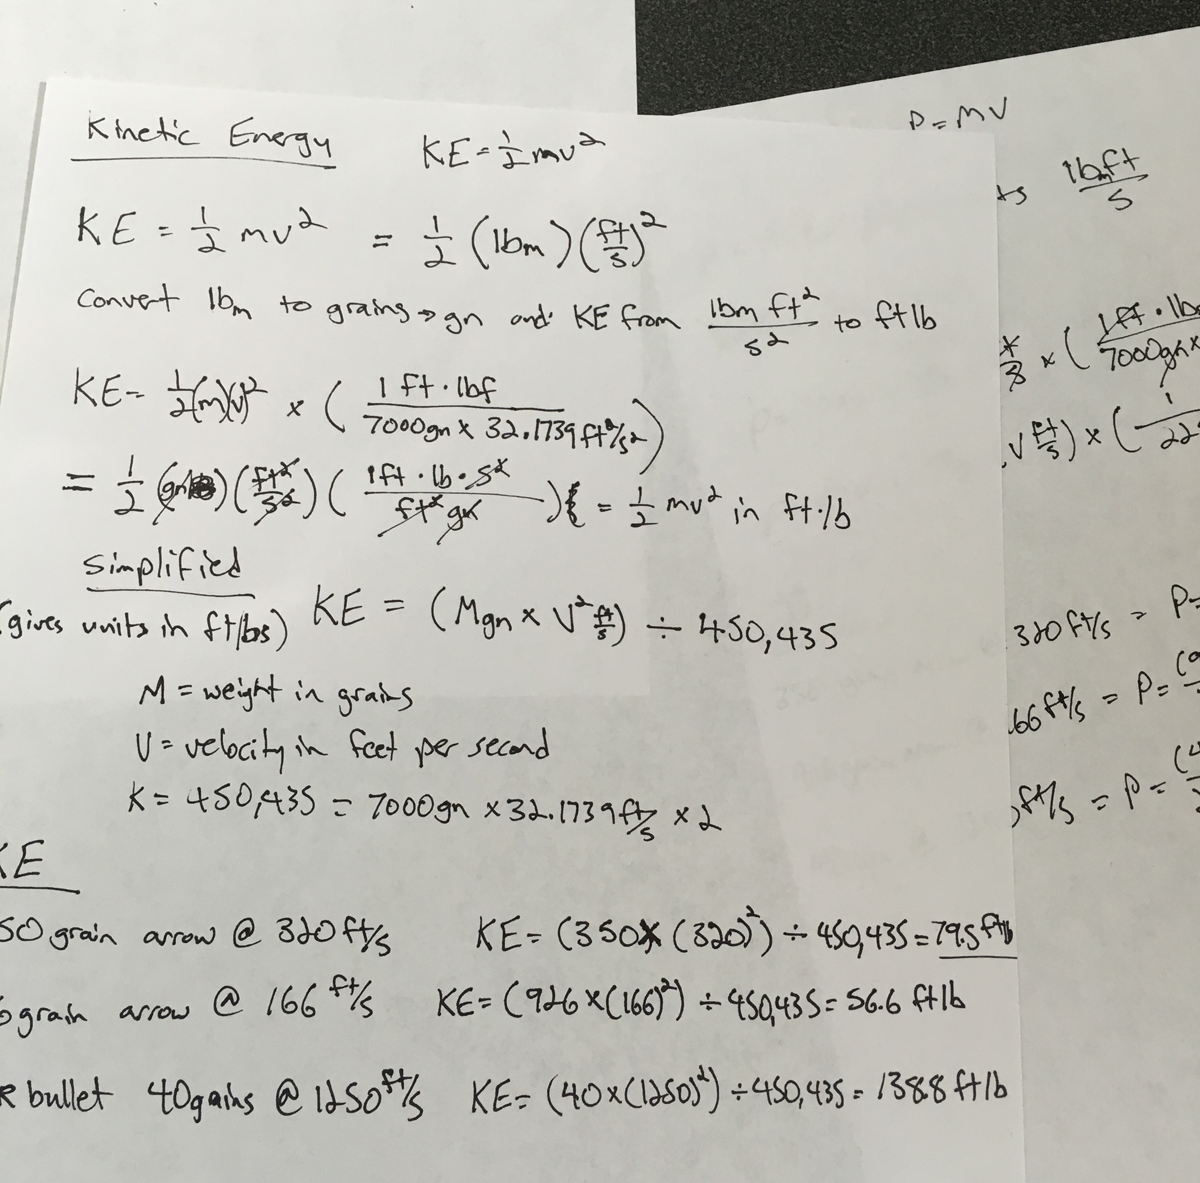 Kinetic Energy KE = 1/2 mv²
KE = 1/2 mv² = 1/2 (lbm)(ft/s)²
Convert lbm to grains → gn and KE from lbm ft²/s² to ftlb
KE = 1/2(m)(v)² × (1 ft·lbf / 7000gn × 32.1739 ft²/s²)
= 1/2 (gn)(ft²/s²)(1ft·lb·s²/ft² gn) = 1/2 mv² in ft·lb
Simplified
(gives units in ft/lbs) KE = (Mgn × V² ft/s) ÷ 450,435
M = weight in grains
V = velocity in feet per second
K = 450,435 = 7000gn × 32.1739 ft/s × 2
KE
50 grain arrow @ 320 ft/s KE = (350 × (320)²) ÷ 450,435 = 79.5 ftlb
6 grain arrow @ 166 ft/s KE = (926 × (166)²) ÷ 450,435 = 56.6 ftlb
R bullet 40 gains @ 1250 ft/s KE = (40 × (1250)²) ÷ 450,435 = 138.8 ftlb
P = MV
ts lbm ft/s
× (1ft·lb / 7000gn ×
V ft/s) × (1/22
320 ft/s = P =
66 ft/s = P = (9
ft/s = P =